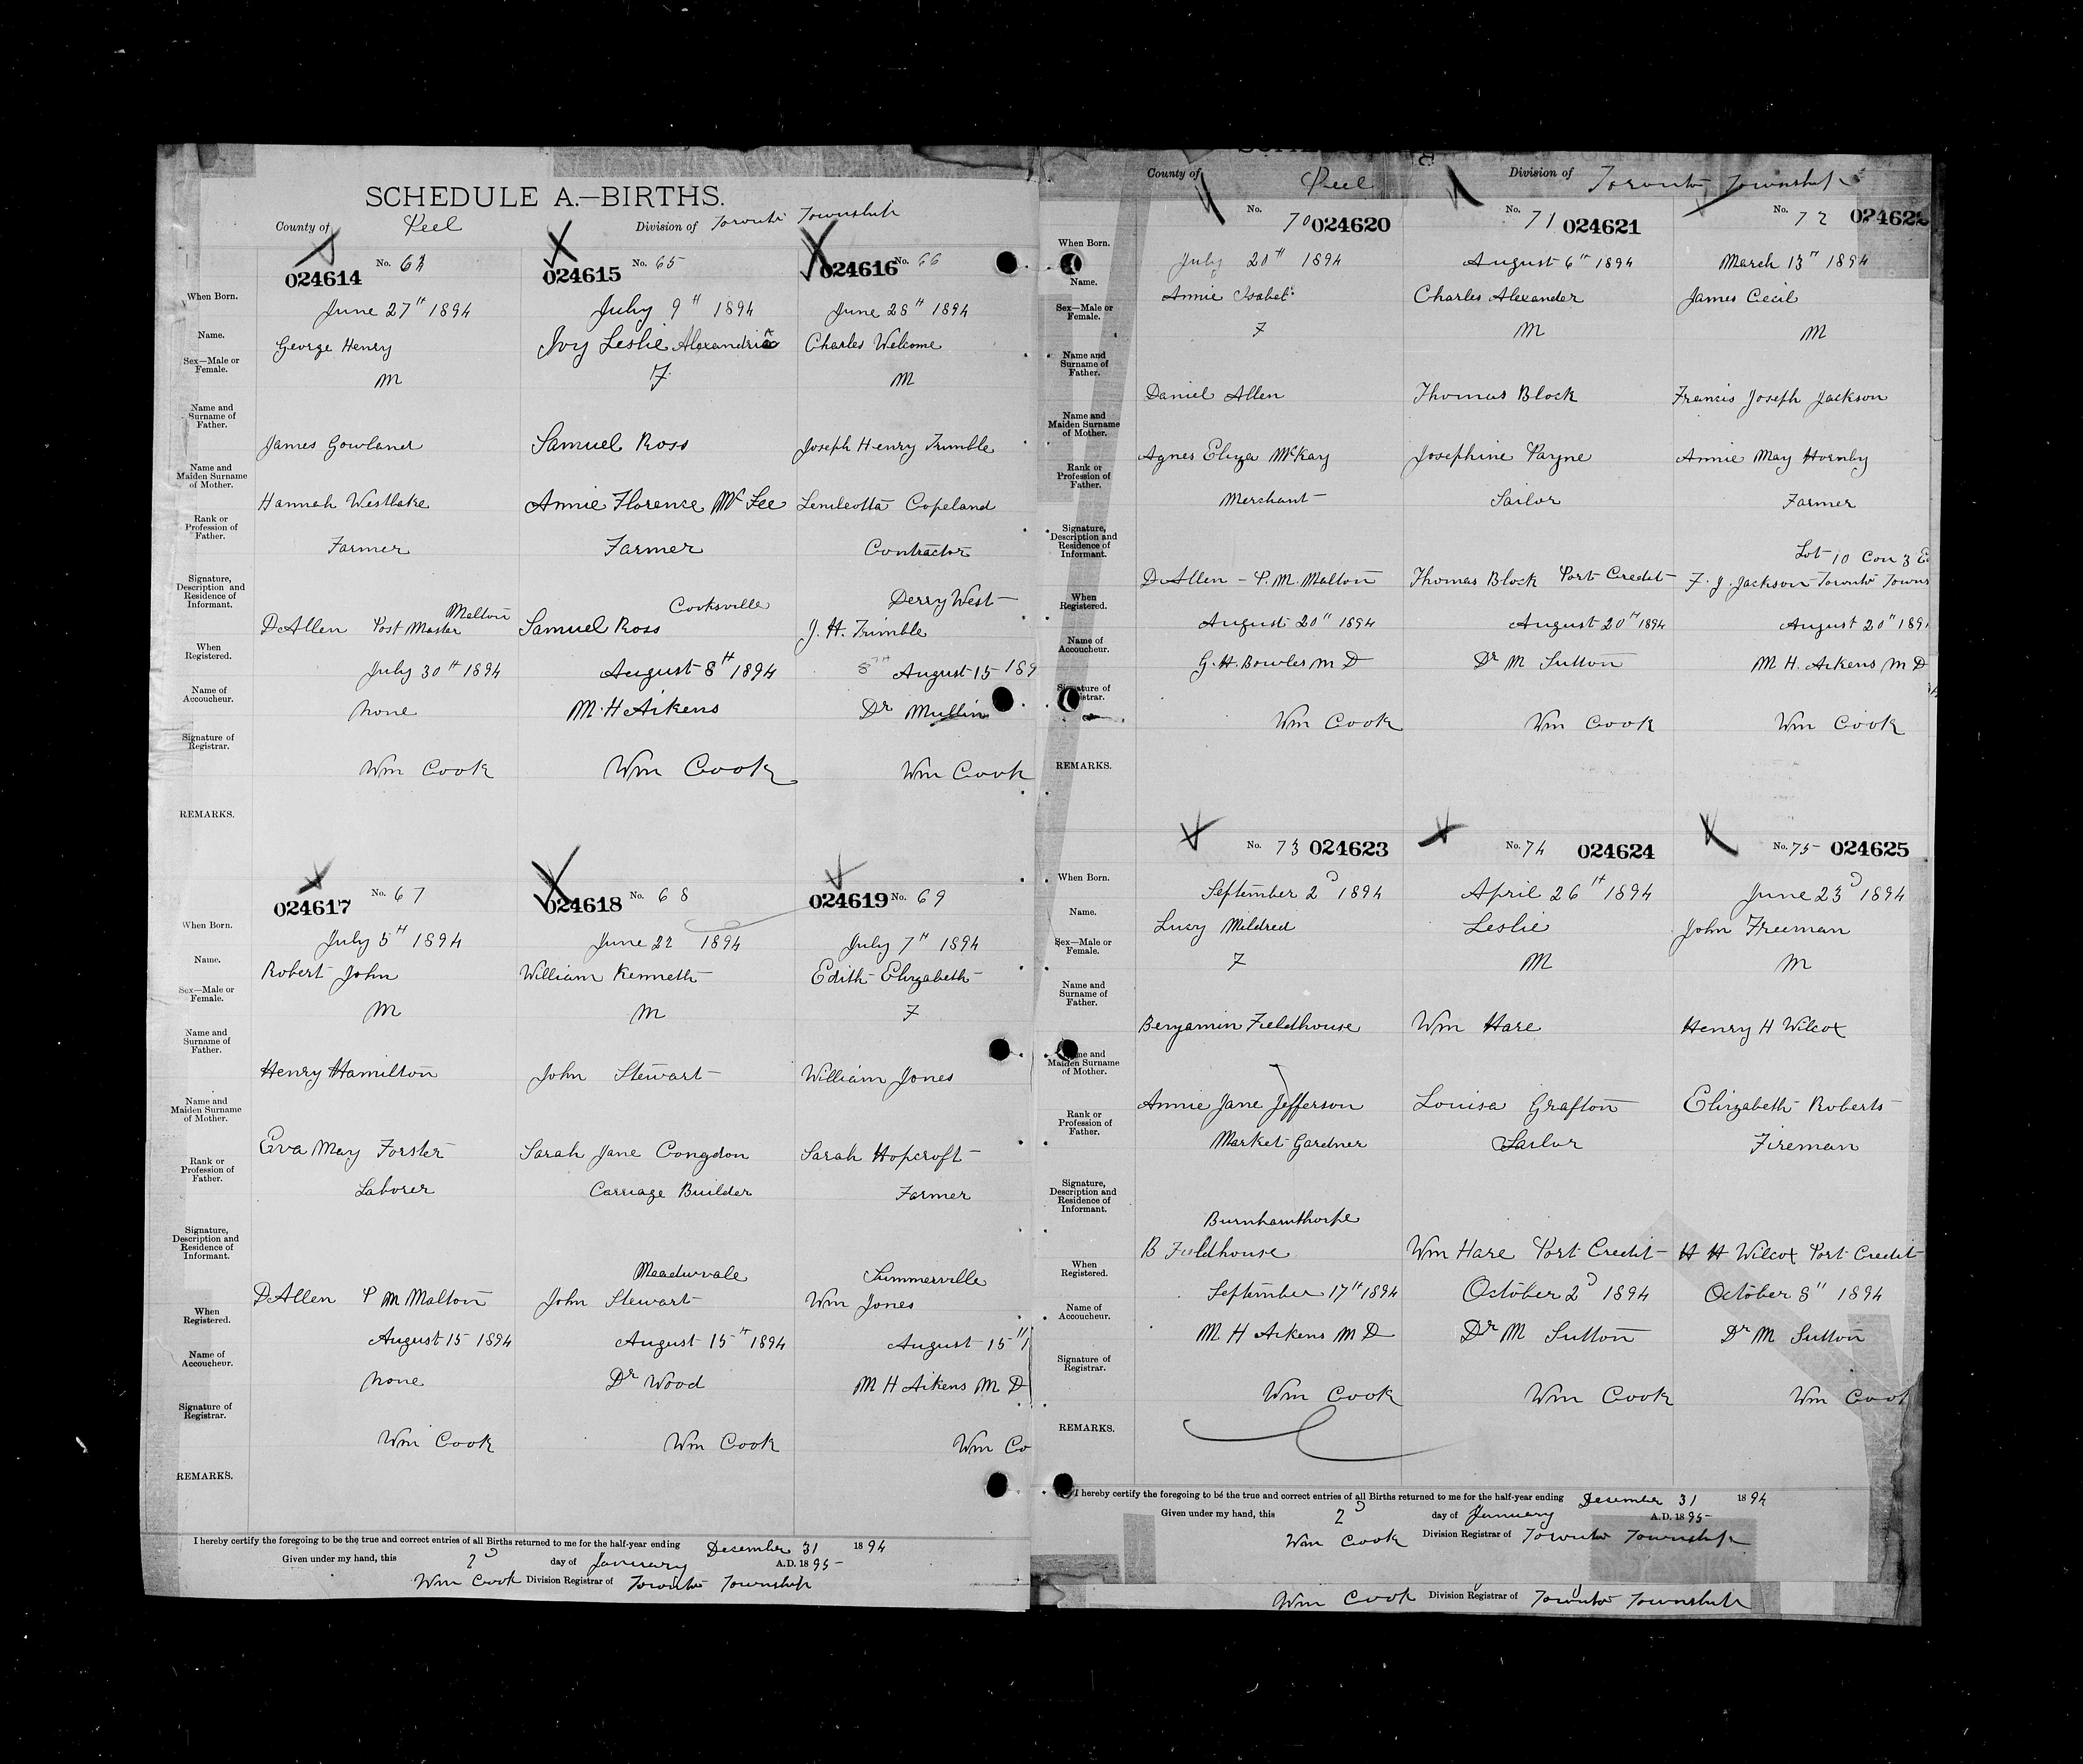 SCHEDULE A.—BIRTHS.
County of Peel Division of Toronto Township
024614 No. 64 024615 No. 65 024616 No. 66
When Born. June 27th 1894 July 9th 1894 June 28th 1894
Name. George Henry Ivy Leslie Alexandria Charles Welcome
Sex—Male or Female. M F M
Name and Surname of Father. James Gowland Samuel Ross Joseph Henry Trimble
Name and Maiden Surname of Mother. Hannah Westlake Annie Florence McFee Copeland
Rank or Profession of Father. Farmer Farmer Contractor
Signature, Description and Residence of Informant. D Allen Post Master Malton Samuel Ross Cooksville J. H. Trimble Derry West
When Registered. July 30th 1894 August 8th 1894 August 15 189
Name of Accoucheur. None M. H Aikens Dr Mullin
Signature of Registrar. Wm Cook Wm Cook Wm Cook
REMARKS.
024617 No. 67 024618 No. 68 024619 No. 69
When Born. July 5th 1894 June 22 1894 July 7th 1894
Name. Robert John William Kenneth Edith Elizabeth
Sex—Male or Female. M M F
Name and Surname of Father. Henry Hamilton John Stewart William Jones
Name and Maiden Surname of Mother. Eva May Forster Sarah Jane Congdon Sarah Hopcroft
Rank or Profession of Father. Laborer Carriage Builder Farmer
Signature, Description and Residence of Informant. D Allen P M Malton John Stewart Meadowvale Wm Jones Summerville
When Registered. August 15 1894 August 15th 1894 August 15th 1
Name of Accoucheur. None Dr Wood M H Aikens M D
Signature of Registrar. Wm Cook Wm Cook Wm Co
REMARKS.
I hereby certify the foregoing to be the true and correct entries of all Births returned to me for the half-year ending December 31 1894
Given under my hand, this 2d day of January A.D. 1895
Wm Cook Division Registrar of Toronto Township
County of Peel Division of Toronto Township
No. 70 024620 No. 71 024621 No. 72 024622
When Born. July 20th 1894 August 6th 1894 March 13th 1894
Name. Annie Isabel Charles Alexander James Cecil
Sex—Male or Female. F M M
Name and Surname of Father. Daniel Allen Thomas Block Francis Joseph Jackson
Name and Maiden Surname of Mother. Agnes Eliza McKay Josephine Payne Annie May Hornby
Rank or Profession of Father. Merchant Sailor Farmer
Signature, Description and Residence of Informant. D Allen - P. M. Malton Thomas Block Port Credit F. J. Jackson Lot 10 Con 3 E Toronto Towns
When Registered. August 20th 1894 August 20th 1894 August 20th 189
Name of Accoucheur. G. H. Bowles M D Dr M Sutton M H. Aikens M D
Signature of Registrar. Wm Cook Wm Cook Wm Cook
REMARKS.
No. 73 024623 No. 74 024624 No. 75 024625
When Born. September 2d 1894 April 26th 1894 June 23d 1894
Name. Lucy Mildred Leslie John Freeman
Sex—Male or Female. F M M
Name and Surname of Father. Benjamin Fieldhouse Wm Hare Henry H Wilcox
Name and Maiden Surname of Mother. Annie Jane Jefferson Louisa Grafton Elizabeth Roberts
Rank or Profession of Father. Market Gardner Sailor Fireman
Signature, Description and Residence of Informant. B Fieldhouse Burnhamthorpe Wm Hare Port Credit H H Wilcox Port Credit
When Registered. September 17th 1894 October 2d 1894 October 8" 1894
Name of Accoucheur. M H Aikens M D Dr M Sutton Dr M Sutton
Signature of Registrar. Wm Cook Wm Cook Wm Cook
REMARKS.
I hereby certify the foregoing to be the true and correct entries of all Births returned to me for the half-year ending December 31 1894
Given under my hand, this 2d day of January A.D. 1895
Wm Cook Division Registrar of Toronto Township
Wm Cook Division Registrar of Toronto Township